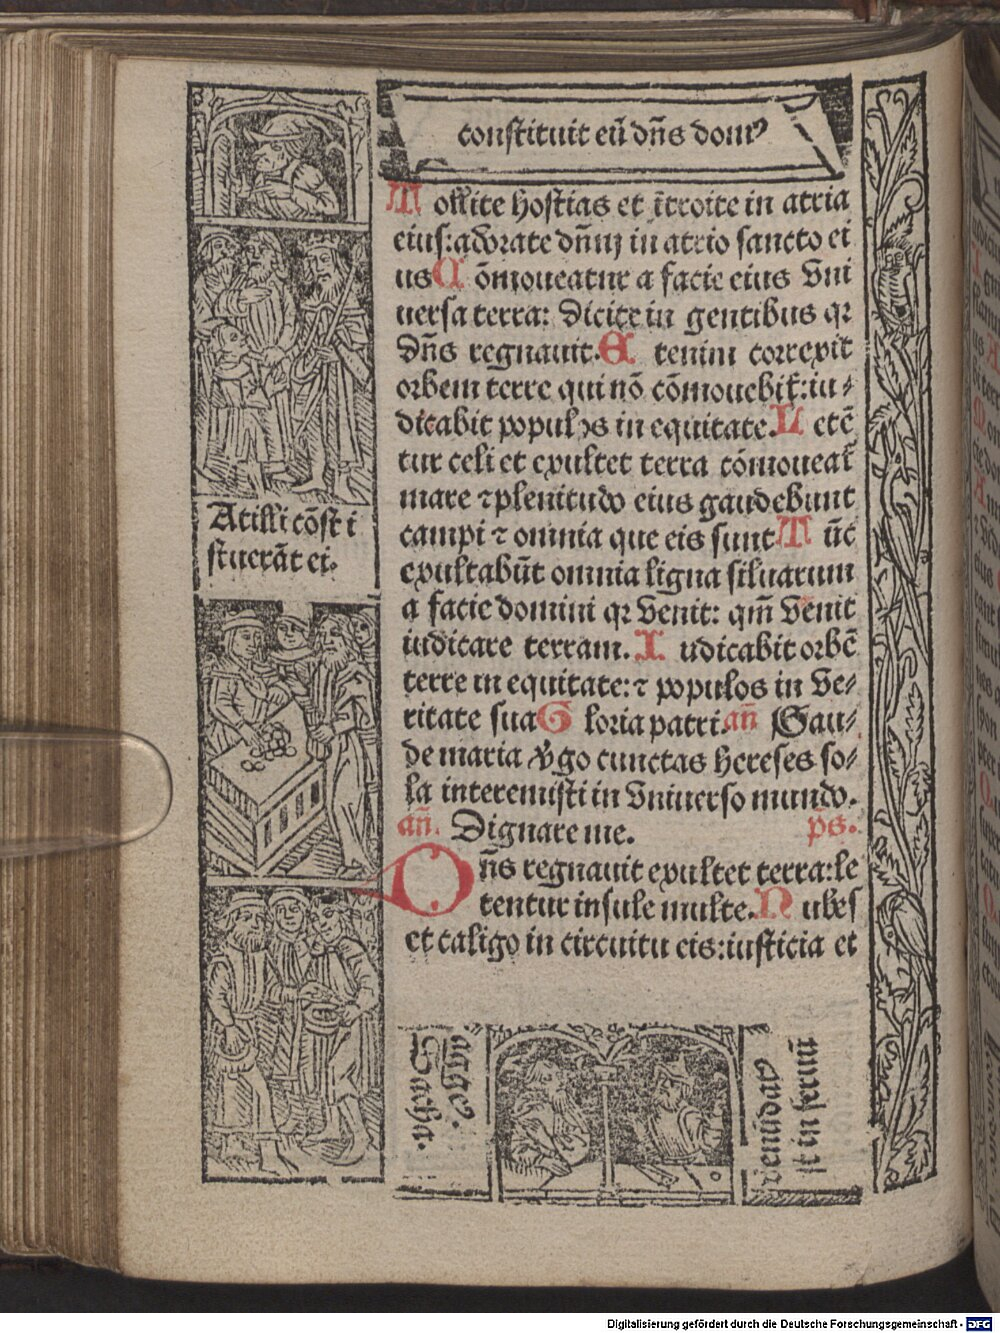 constituit eū dn̄s domꝰ
Tollite hostias et ītroite in atria
eius: adorate dn̄m in atrio sancto ei
us Cōmoueatur a facie eius vni
uersa terra: dicite in gentibus qꝛ
dn̄s regnauit. Etenim correxit
orbem terre qui nō cōmouebit̄: iu⸗
dicabit populos in equitate. Letē
tur celi et exultet terra cōmoueat̄
mare ⁊ plenitudo eius gaudebunt
campi ⁊ omnia que eis sunt Tūc
exultabūt omnia ligna siluarum
a facie domini qꝛ venit: qm̄ venit
iudicare terram. Iudicabit orbē
terre in equitate: ⁊ populos in ve⸗
ritate sua Gloria patri. an̄ Gau⸗
de maria v̄go cunctas hereses so⸗
la interemisti in vniuerso mundo.
an̄. Dignare me. ps̄.
Dn̄s regnauit exultet terra: le
tentur insule multe. Nubes
et caligo in circuitu eis: iusticia et
At illi cōst i
stuerāt ei.
agge.
Sacha.
venūdatꝰ
st in seruū
Digitalisierung gefördert durch die Deutsche Forschungsgemeinschaft - DFG